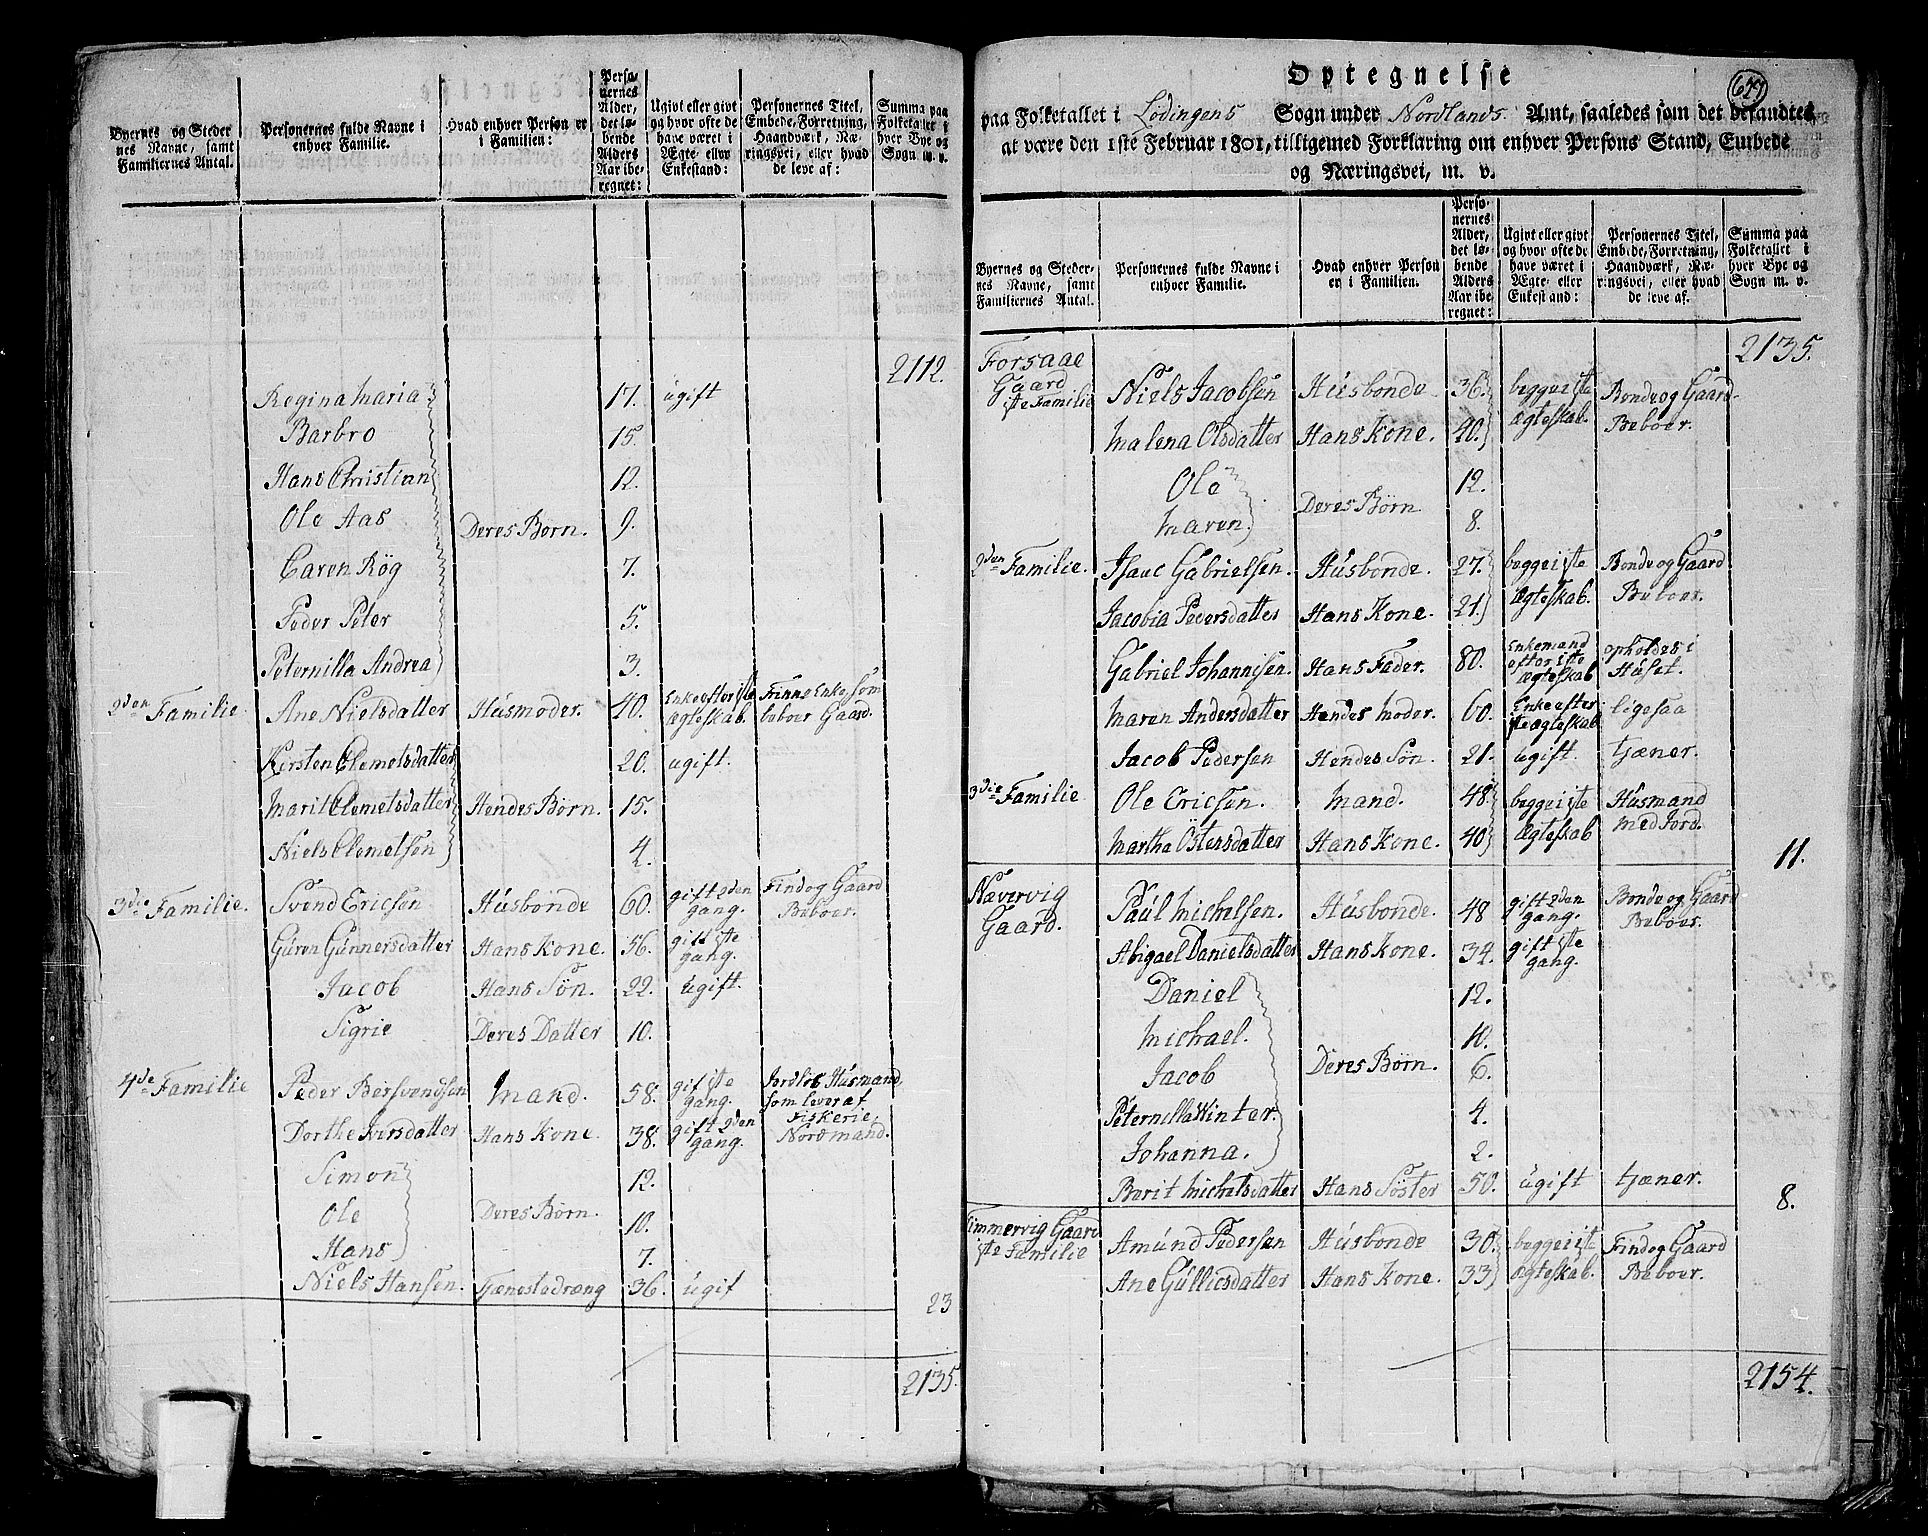 Byernes og Steder
nes Navne, samt
Familiernes Antal.
Personernes fulde Navne i
enhver Familie.
Hvad enhver Person er
i Familien:
Perso-
nernes
Alder,
det lø-
bende
Alders
Aar ibe-
regnet:
Ugivt eller givt
og hvor ofte de
have været i
Ægte- eller
Enkestand:
Personernes Titel,
Embede, Forretning,
Haandværk, Næ-
ringsvei, eller hvad
de leve af:
Summa paa
Folketallet i
hver Bye og
Sogn m. v.
2112.
Reginamaria 17. ugift
Barbro 15.
Hans Christian 12.
Ole Aas Deres Børn. 9.
Caren Røg 7.
Peder Peter 5.
Peternilla Andrea 3.
2den Familie. Ane Nielsdatter Húsmoder. 40. Enke efter 1ste Ægteskab. Finne Enke som beboer Gaard.
Kirsten Clemetsdatter 20. ugift.
Marit Clemetsdatter Hendes Børn. 15.
Niels Clemetsen 4.
3die Familie. Svend Ericsen Húsbonde 60. gift 2den gang. Find og Gaard Beboer.
Gúren Gúnnersdatter Hans Kone. 56. gift 1ste gang.
Jacob Hans Søn. 22. ugift.
Sigrie Deres Datter 10.
4de Familie Peder Bersvendsen Mand. 58. gift 1ste gang. Jordløs Húsmand, som lever af Fiskerie. Nordmand.
Dorthe Iversdatter Hans Kone. 38. gift 2den gang.
Simon 12.
Ole Deres Børn. 10.
Hans 7.
Niels Hansen. Tjenestedræng 36. ugif
23
2135.
Optegnelse
659
paa Folketallet i Lødingens Sogn under Nordlands Amt, saaledes som det befandtes
at være den 1ste Februar 1801, tilligemed Forklaring om enhver Persons Stand, Embede
og Næringsvei, m. v.
Byernes og Steder-
nes Navne, samt
Familiernes Antal.
Personernes fulde Navne i
enhver Familie.
Hvad enhver Person
er i Familien.
Perso-
nernes
Alder,
det lø-
bende
Alders
Aar ibe-
regnet:
Ugivt eller givt
og hvor ofte de
have været i
Ægte- eller
Enkestand:
Personernes Titel,
Embede, Forretning,
Haandværk, Næ-
ringsvei, eller hvad
de leve af.
Summa paa
Folketallet i
hver Bye og
Sogn m. v.
2135.
Forsaae Gaard 1ste Familie Niels Jacobsen Húsbonde 36. begge i 1ste Ægteskab. Bonde og Gaard-Beboer.
Malena Olsdatter Hans Kone. 40.
Ole 12.
Maren Deres Børn 8.
2den Familie. Isaac Gabrielsen. Húsbonde. 27. begge i 1ste Ægteskab. Bonde og Gaard Beboer.
Jacobia Pedersdatter Hans Kone. 21.
Gabriel Johannisen. Hans Fader. 80. Enkemand efter 1ste Ægteskab opholdes i Húset.
Maren Andersdatter Hendes Moder. 60. Enke efter 1ste Ægteskab ligesaa
Jacob Pedersen Hendes Søn. 21. ugift tjæner.
3die Familie Ole Ericsen. Mand. 48. begge i 1ste Ægteskab Húsmand med Jord.
Martha Östersdatter Hans Kone. 40
11.
Nævervig Gaard. Paúl Michelsen. Húsbonde. 48 gift 2den gang. Bonde og Gaard Beboer.
Abigael Danielsdatter Hans Kone. 34. gift 1ste gang.
Daniel 12.
Michael. 10.
Jacob Deres Børn. 6.
Peternilla Winter. 4.
Johanna. 2.
Berit Michelsdatter Hans Søster 50. ugift tjæner.
8.
Timmervig Gaard 1ste Familie Amúnd Pedersen Húsbonde 30. begge i 1ste Ægteskab. Find og Gaard Beboer.
Ane Gúllicsdatter Hans Kone. 33
2154.